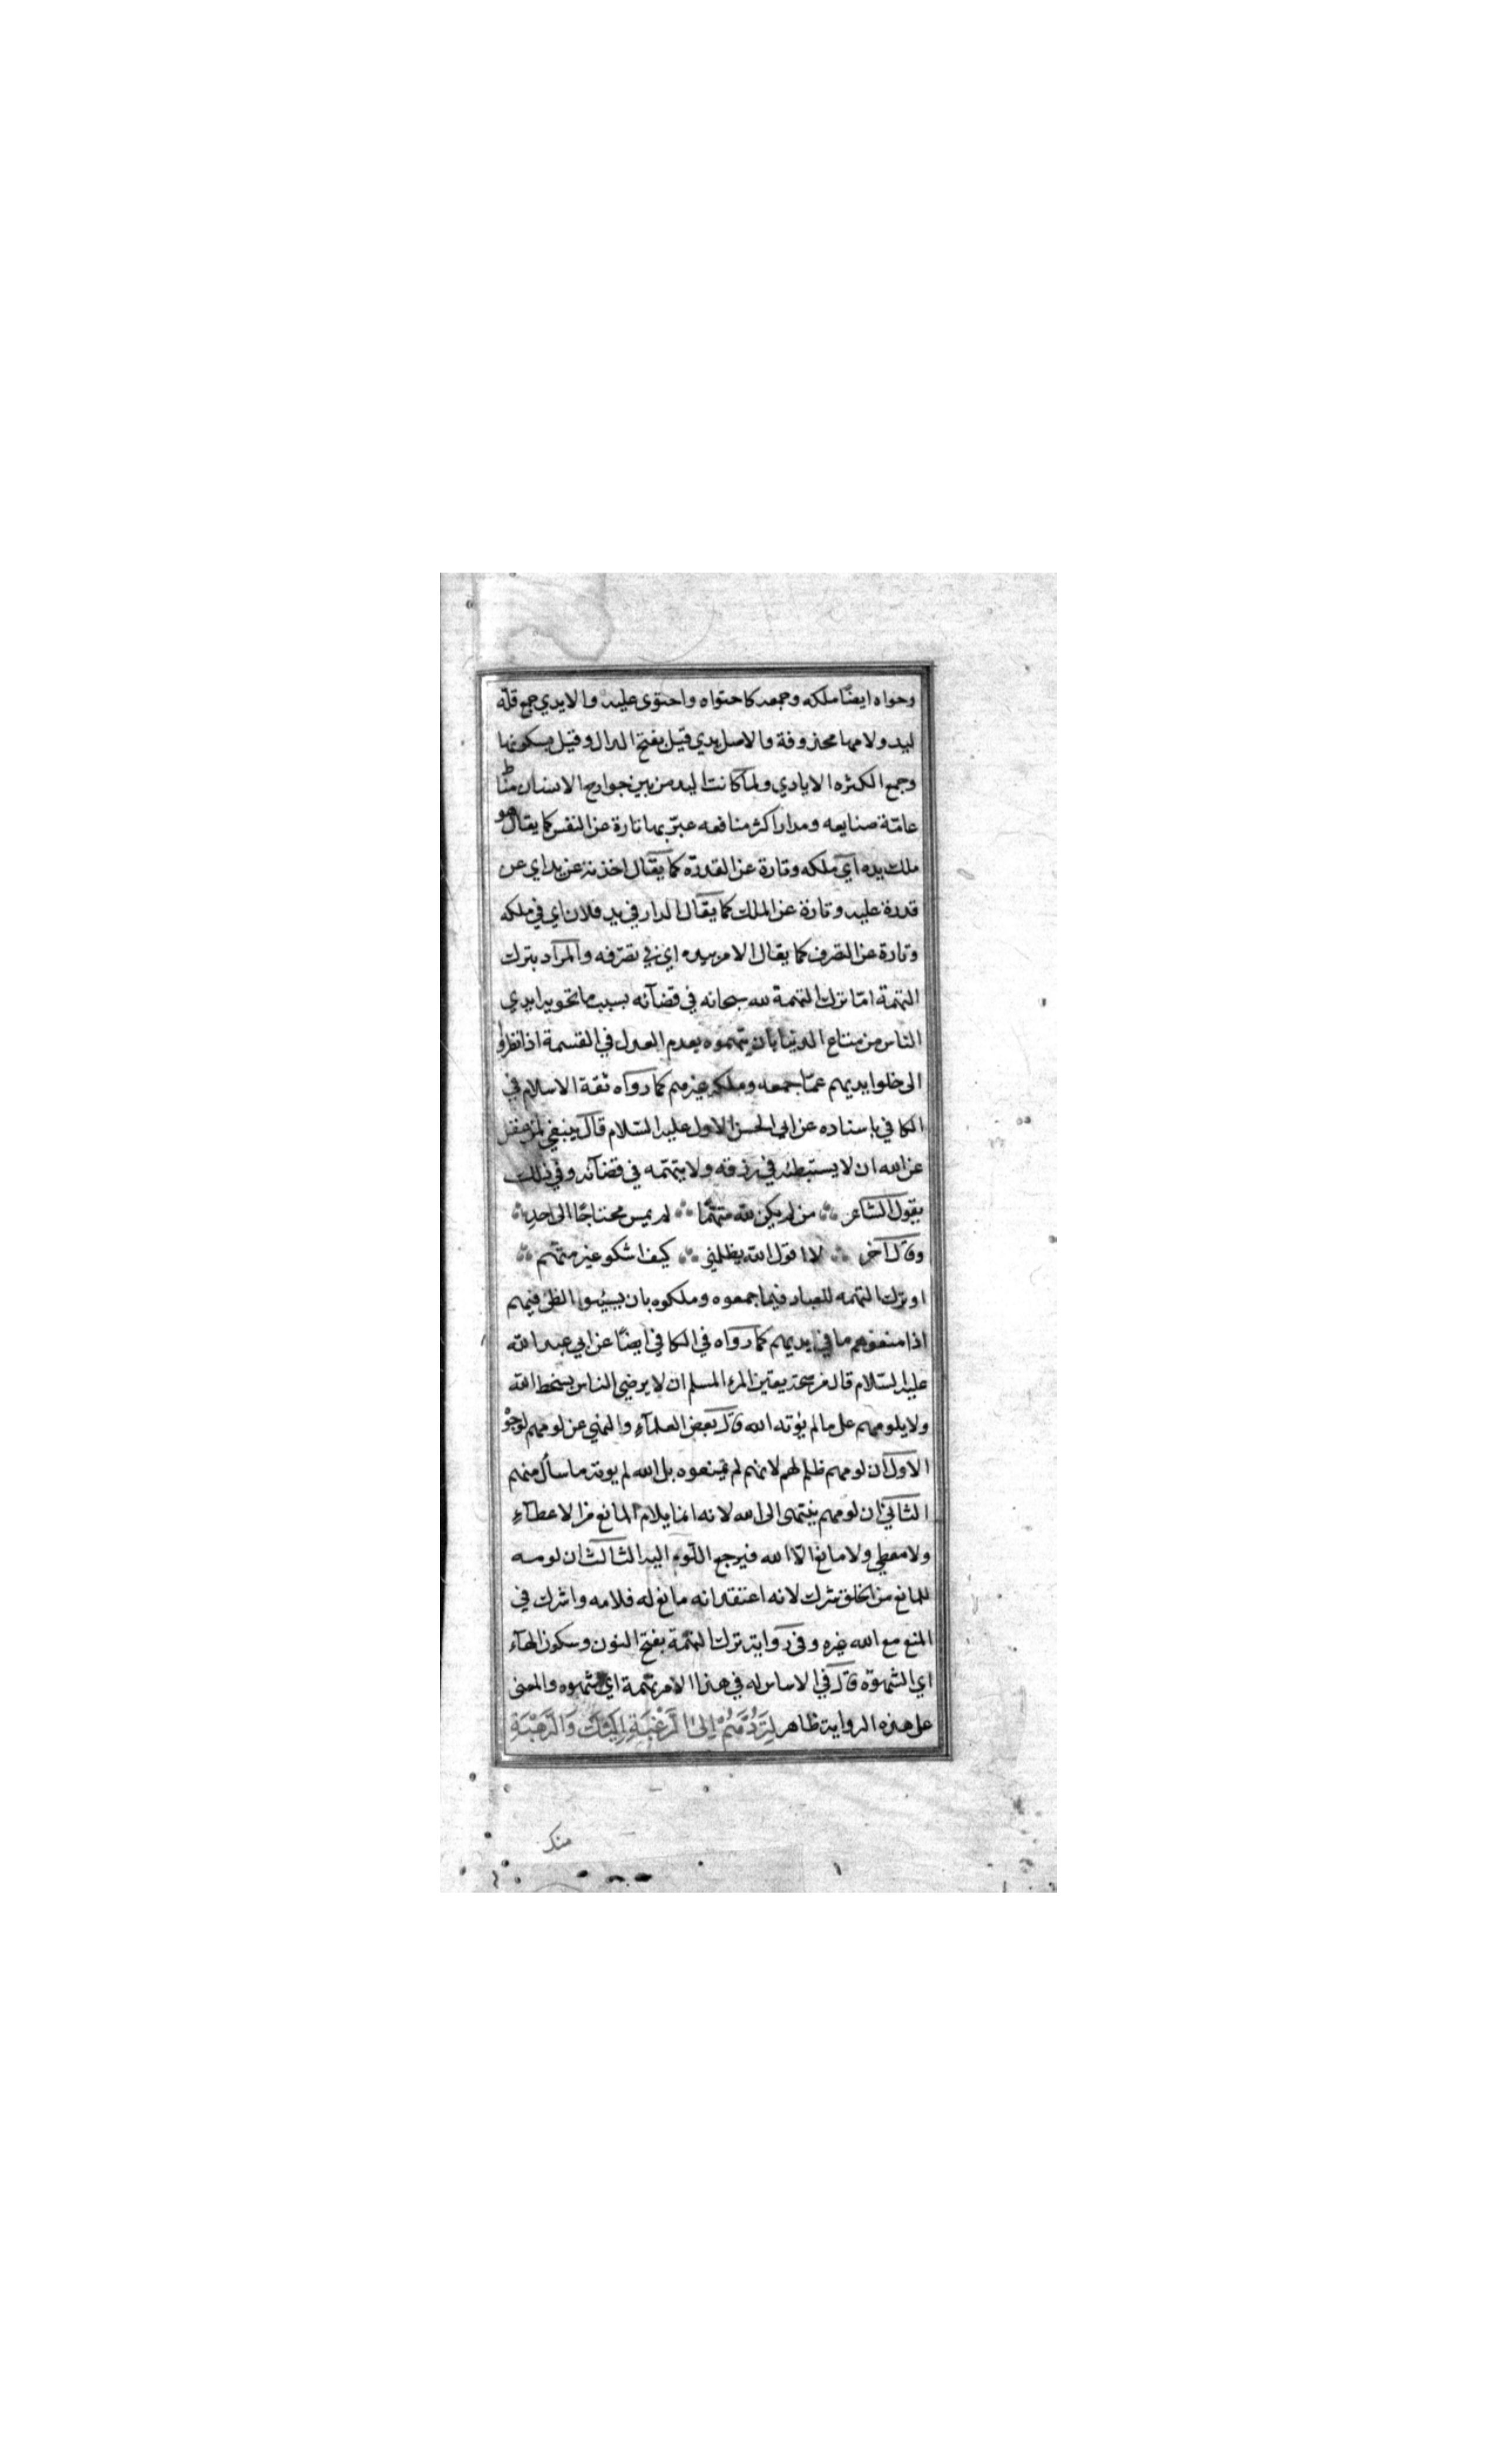 وحواه ايضًا ملكه وجمعه كاحتواه واحتوى عليه والايدي جمع قلّة
ليد ولامها محذوفة والاصل يدي قيل بفتح الدال وقيل بسكونها
وجمع الكثره الايادي ولمّا كانت اليد من بين جوارح الانسان مناط
عامّة صنايعه ومدار اكثر منافعه عبّر بها تارة عن النفس كما يقال هو
ملك يده اي ملكه وتارة عن القدرة كما يقال اخذته عن يد اي عن
قدرة عليه وتارة عن الملك كما يقال الدار في يد فلان اي في ملكه
وتارة عن التصرف كما يقال الامر بيده اي في تصرّفه والمراد بترك
التهمة امّا ترك التهمة لله سبحانه في قضآئه بسبب ما تحويه ايدي
الناس من متاع الدنيا بان يتهموه بعدم العدل في القسمة اذا نظروا
الى خلو ايديهم عمّا جمعه وملكه غيرهم كما رواه ثقة الاسلام في
الكافي باسناده عن ابي الحسن الاول عليه السّلام قال ينبغي لمن عقل
عن الله ان لا يستبطئه في رزقه ولا يتهمه في قضآئه وفي ذلك
يقول الشاعر من لم يكن لله متهمًا لم يمس محتاجًا الى احدِ
وقال آخر لا اقول الله يظلمني كيف اشكو غير متهم
او ترك التهمه للعباد فيما جمعوه وملكوه بان يسيئوا الظن فيهم
اذا منعوهم ما في ايديهم كما رواه في الكافي ايضًا عن ابي عبد الله
عليه السّلام قال من صحة يقين المرء المسلم ان لا يرضي الناس بسخط الله
ولا يلومهم على ما لم يؤته الله قال بعض العلمآء والنهي عن لومهم لوجوه
الاول ان لومهم ظلم لهم لانهم لم يمنعوه بل الله لم يوته ما سأل منهم
الثاني ان لومهم ينتهى الى الله لانه انما يلام المانع من الاعطآءِ
ولا معطي ولا مانع الّا الله فيرجع اللّوم اليه الثالث ان لومه
للمانع من الخلق شرك لانه اعتقد انه مانع له فلامه واشرك في
المنع مع الله غيره وفي رواية ترك النهمة بفتح النون وسكون الهآء
اي الشهوة قال في الاساس له في هذا الامر نهمة اي شهوه والمعنى
على هذه الرواية ظاهر لِتَرُدَّهُمْ اِلَى الرَّغْبَةِ اِلَيْكَ وَالرَّهْبَةِ
منك